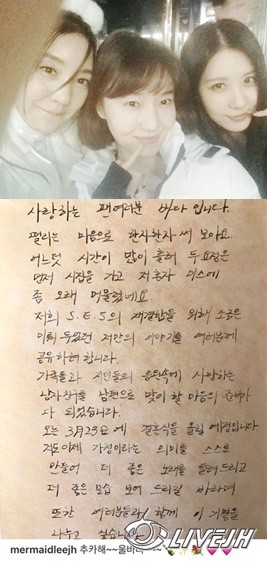 사랑하는 팬여러분 바다 입니다.
떨리는 마음으로 한자한자 써 보아요
어느덧 시간이 많이 흘러 두 요정은
먼저 시집을 가고 저 혼자 미스에
좀 오래 머물렀네요
저희 S.E.S의 재결합을 위해 조금은
미뤄 두었던 저만의 이야기를 여러분께
공유하려 합니다.
가족들과 지인들의 응원속에 사랑하는
남자친구를 남편으로 맞이 할 마음의 준비가
다 되었습니다.
오는 3月23日에 결혼식을 올릴 예정입니다
저도 이제 가정이라는 의미를 스스로
만들어 더 좋은 노래를 들려드리고
더 좋은 모습 보여 드리길 바라며
또한 여러분들과 함께 이 기쁨을
나누고 싶습니다
LIVEJH
mermaidleejh 추카해~~울바다